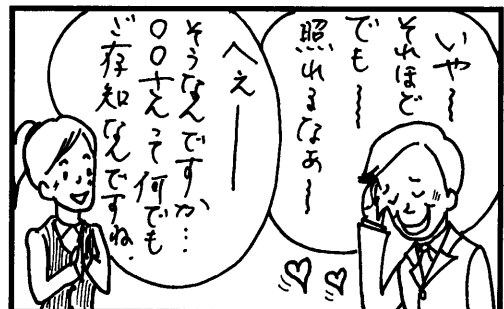 いや〜
それほど
でも〜
照れるなぁ〜
へぇ——
そうなんですか…
〇〇さんって何でも
ご存知なんですね.